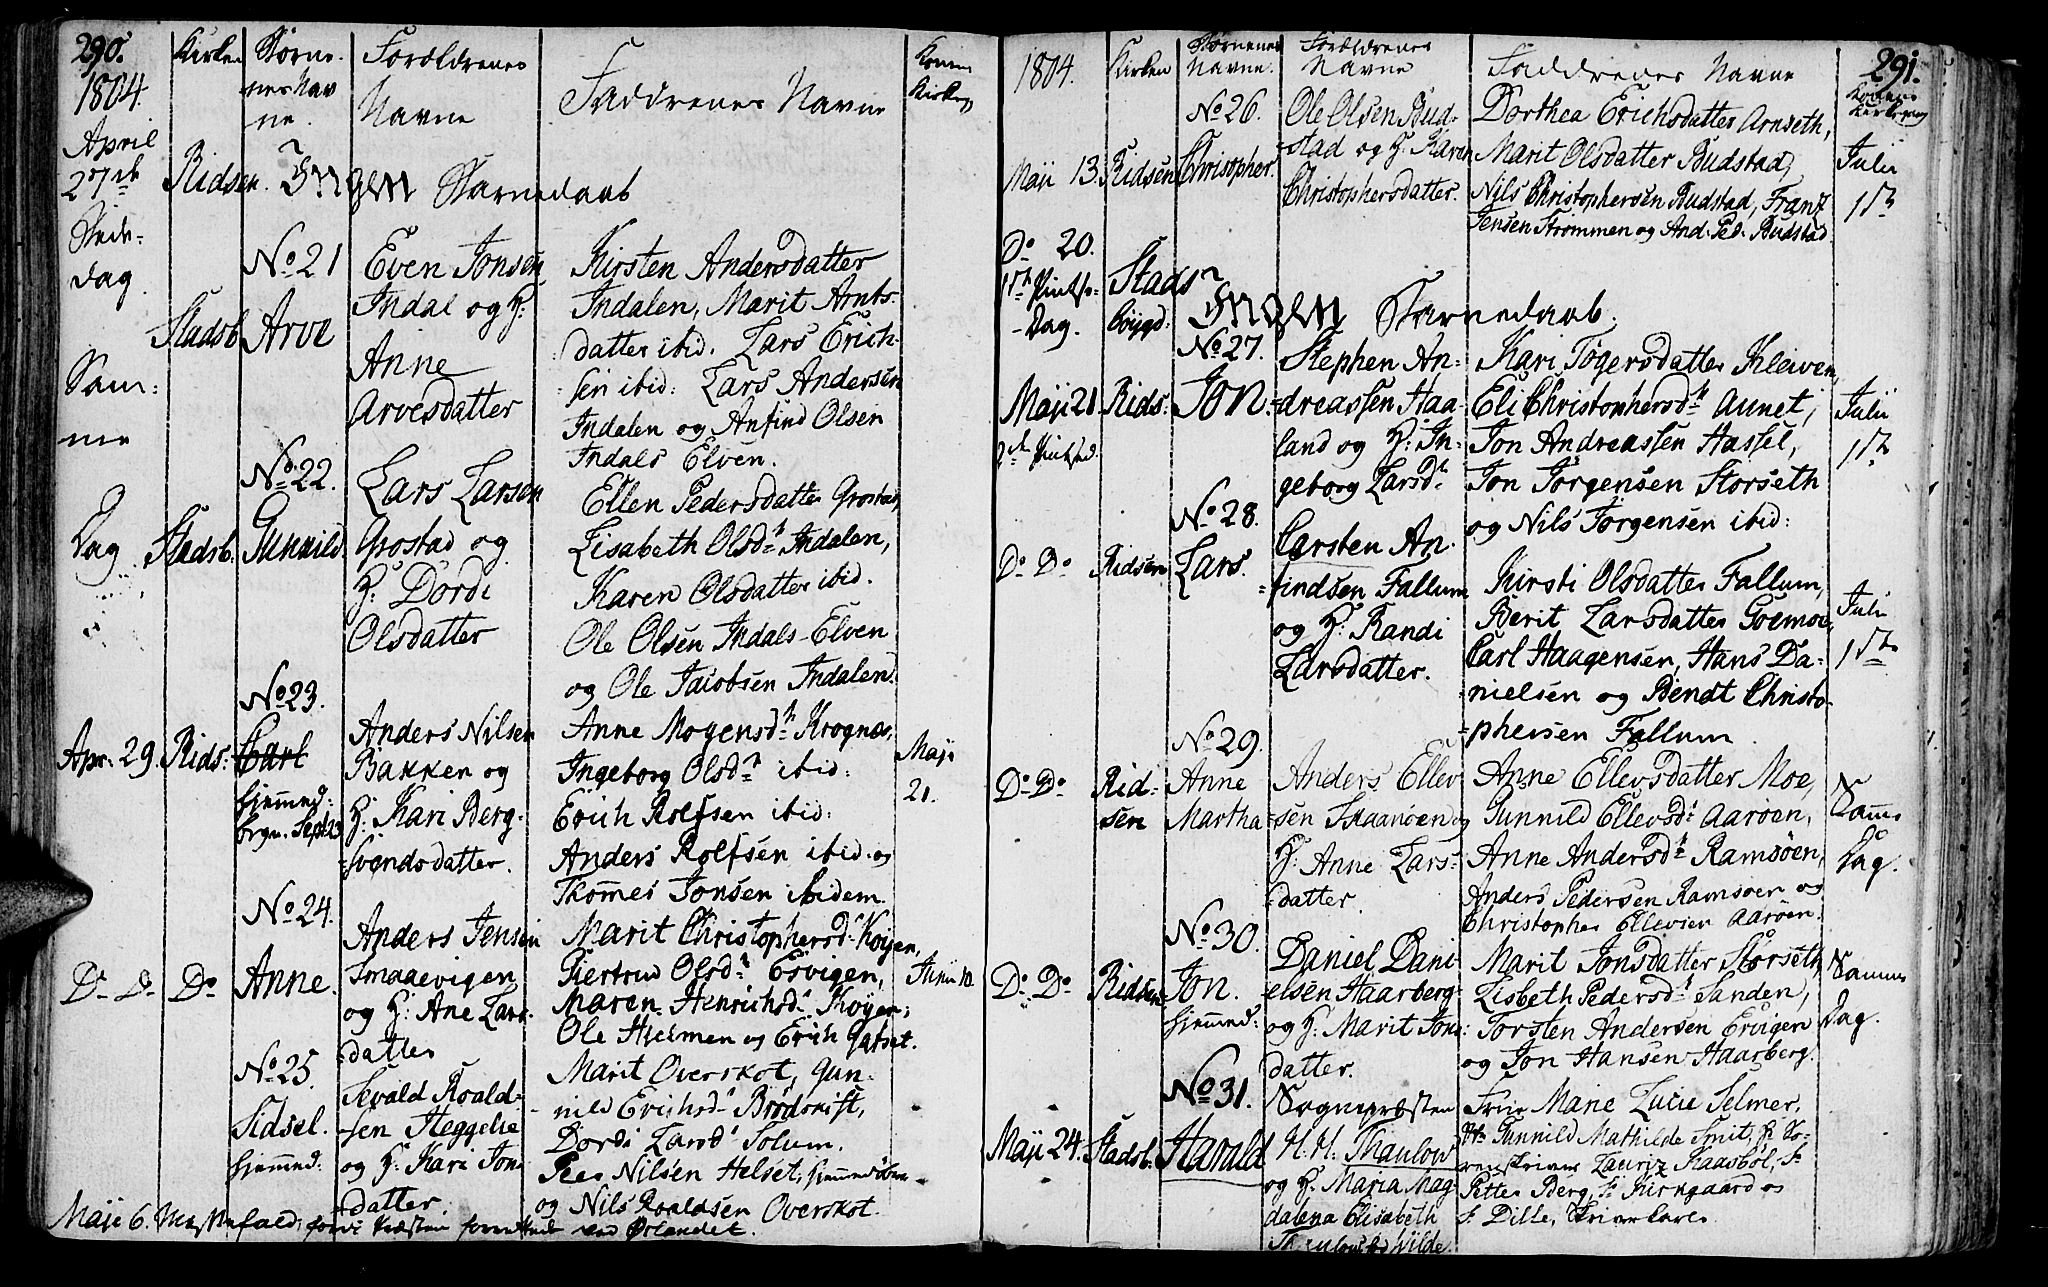 290.
1804.
Kirken
Børne-
nes Nav
ne.
Foreldrenes
Navne
Faddrenes Navne
Konens
Kirkeg.
April
27de
Bede-
dag
Ridsen. Ingen Barnedaab
No 21
Sam-
me
Dag
Stadsb. Arve
Even Jonsen
Indal og H:
Anne
Arvesdatter
Kirsten Andersdatter
Indalen, Marit Arnts-
datter ibid. Lars Erich-
sen ibid: Lars Andersen
Indalen og Anfind Olsen
Indals Elven.
No 22.
Stadsb. Gunnild
Lars Larsen
Grostad og
H: Dordi
Olsdatter
Ellen Pedersdatter Grostad,
Lisabeth Olsdr Indalen,
Karen Olsdatter ibid.
Ole Olsen Indals-Elven
og Ole Jacobsen Indalen.
No 23.
Apr. 29. Rids: Carl
hjemmed:
Sept. 23
Anders Nilsen
Bakken og
H: Kari Berg-
svendsdatter.
Anne Mogensdr Krognæs,
Ingeborg Olsdr ibid:
Erich Rolfsen ibid:
Anders Rolfsen ibid. og
Thomes Jonsen ibidem.
Maji
21.
No 24.
Do Do Do Anne.
Anders Jensen
Smaaevigen
og H: Ane Lars-
datter
Marit Christophersd. Køyen,
Giertrud Olsdr Ervigen,
Maren Henrichsd. Køyen,
Ole Hielmen og Erich
Junii 10.
No 25.
Sidsel.
hjemmed:
Sevald Roald-
sen Heggelie
og H: Kari Jons
datter.
Marit Overskot, Gun-
nild Erichsd. Brødskift,
Dordi Larsd. Solum.
Peer Nilsen Helset,
og Nils Roaldsen Overskot.
Maji 6. Messefald, Ørlandet.
291.
1804.
Kirken
Børnenes
Navne.
Foreldrenes
Navne
Faddrenes Navne
Konens
Kirkegang
No 26.
Maji 13. Ridsen Christopher.
Ole Olsen Bud-
stad og H: Karen
Christophersdatter.
Dorthea Erichsdatter Arnseth,
Marit Olsdatter Budstad,
Nils Christophersen Budstad, Franz
Jensen Strømmen og And. Ped. Budstad
Julii
1ste
Do 20.
1ste Pintse-
Dag.
Stads-
boygd:
Ingen Barnedaab.
No 27.
Maji 21 Rids: Jon.
2den Pintsed.
Stephen An-
dreassen Haa-
land og H: In-
geborg Larsdr
Kari Togersdatter Kleiven,
Eli Christophersdr Aunet,
Jon Andreassen Hassel,
Jon Jørgensen Storseth
og Nils Jørgensen ibid:
Julii
1ste
No 28.
Do Do Ridsen Lars.
Carsten An-
findsen Fallum
og H: Randi
Larsdatter.
Kirsti Olsdatter Fallum,
Berit Larsdatter Goemoe,
Carl Haagensen, Hans Da-
nielsen og Bendt Christo-
phersen Fallum.
Julii
1ste
No 29.
Do Do Rid-
sen
Anne
Martha
Anders Ellev-
sen Skaanøen og
H: Anne Lars-
datter.
Anne Ellevsdatter Moe,
Gunnild Ellevsd. Aarøen,
Anne Andersdr Ramsøen,
Anders Pedersen Ramsøen og
Christopher Ellevsen Aarøen.
Samme
Dag.
No 30.
Do Do Ridsen Jon.
hjemmed:
Daniel Dani-
elsen Haarberg
og H: Marit Jons-
datter.
Marit Jonsdatter Størseth,
Lisbeth Pedersdr Sanden,
Torsten Andersen Ervigen
og Jon Hansen Haarberg.
Samme
Dag.
No 31.
Maji 24. Stadsb: Harald
Sognepræsten
H. H. Thaulow
og H: Maria Mag
dalena Elisabeth
Thaulow f. Wilde.
Frue Marie Lucie Selmer,
Gunnild Mathilde Smit, H. So-
renskriver Lauriz Kaasbøl,
Petter Berg, Hr Kirkgaard og
Dille, Skriverkarle.